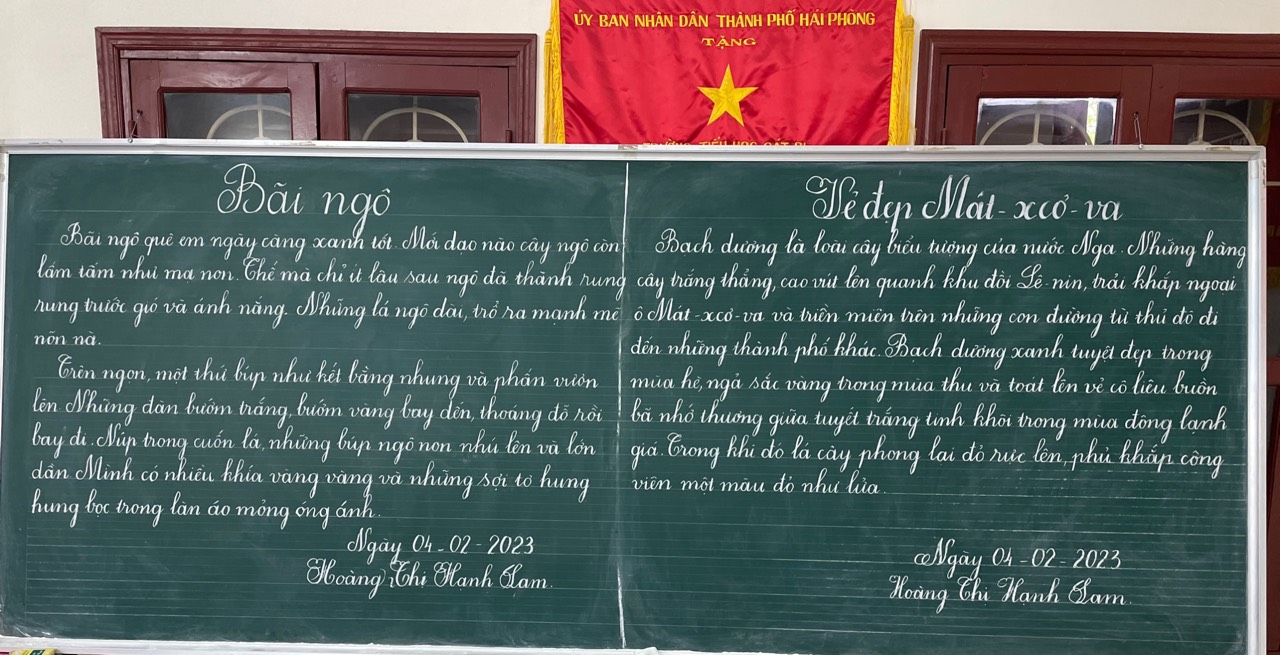 ỦY BAN NHÂN DÂN THÀNH PHỐ HẢI PHÒNG
TẶNG
TRƯỜNG TIỂU HỌC CÁT BI
Bãi ngô
Bãi ngô quê em ngày càng xanh tốt. Mới dạo nào cây ngô còn
lấm tấm như mạ non. Thế mà chỉ ít lâu sau ngô đã thành rung
rung trước gió và ánh nắng. Những lá ngô dài, trổ ra mạnh mẽ
nõn nà.
Trên ngọn, một thứ búp như kết bằng nhung và phấn vươn
lên. Những đàn bướm trắng, bướm vàng bay đến, thoáng đỗ rồi
bay đi. Núp trong cuống lá, những búp ngô non nhú lên và lớn
dần. Mình có nhiều khía vàng vàng và những sợi tơ hung
hung bọc trong làn áo mỏng óng ánh.
Ngày 04-02-2023
Hoàng Thị Hạnh Lam.
Vẻ đẹp Mát-xcơ-va
Bạch dương là loài cây biểu tượng của nước Nga. Những hàng
cây trắng thẳng, cao vút lên quanh khu đồi Lê-nin, trải khắp ngoại
ô Mát-xcơ-va và triền miên trên những con đường từ thủ đô đi
đến những thành phố khác. Bạch dương xanh tuyệt đẹp trong
mùa hè, ngả sắc vàng trong mùa thu và toát lên vẻ cô liêu buồn
bã nhớ thương giữa tuyết trắng tinh khôi trong mùa đông lạnh
giá. Trong khi đó lá cây phong lại đỏ rực lên, phủ khắp công
viên một màu đỏ như lửa.
Ngày 04-02-2023
Hoàng Thị Hạnh Lam.